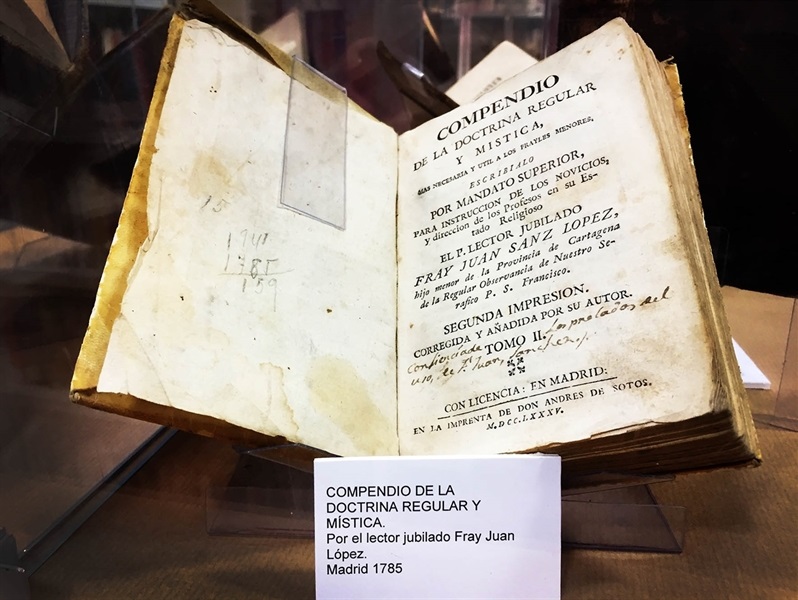 15
1941
1785
159
COMPENDIO
DE LA DOCTRINA REGULAR
Y MISTICA,
MAS NECESARIA Y UTIL A LOS FRAYLES MENORES,
ESCRIBIALO
POR MANDATO SUPERIOR,
PARA INSTRUCCION DE LOS NOVICIOS,
y direccion de los Profesos en su Es-
tado Religioso
EL P. LECTOR JUBILADO
FRAY JUAN SANZ LOPEZ,
hijo menor de la Provincia de Cartagena
de la Regular Observancia de Nuestro Se-
rafico P. S. Francisco.
SEGUNDA IMPRESION.
CORREGIDA Y AÑADIDA POR SU AUTOR.
TOMO II.
Con licencia de Los prelados del
uso, de Fr. Juan, Sanchez
CON LICENCIA: EN MADRID:
EN LA IMPRENTA DE DON ANDRES DE SOTOS.
M.DCC.LXXXV.
COMPENDIO DE LA
DOCTRINA REGULAR Y
MÍSTICA.
Por el lector jubilado Fray Juan
López.
Madrid 1785